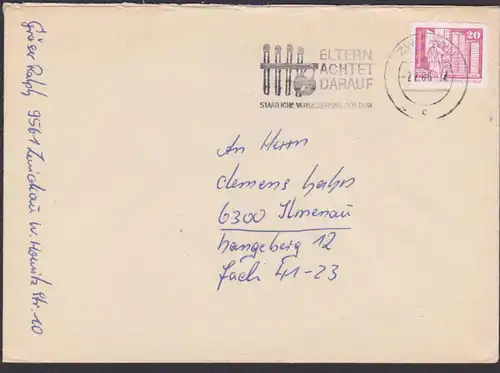 Gräser Ralph 9561 Zwickau W. Howitz Str. 10
ELTERN
ACHTET
DARAUF
STAATLICHE VERSICHERUNG DER DDR
20
c
An Herrn
Clemens
6300 Ilmenau
Langeberg 12
Fach 41-23